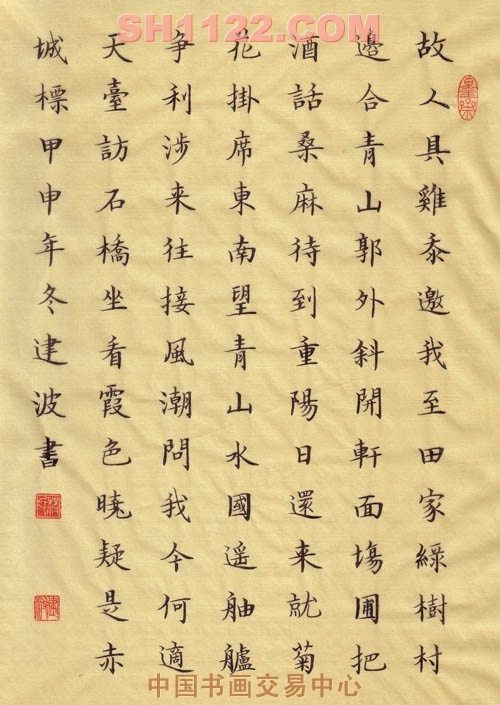 SH1122.COM
故人具雞黍邀我至田家綠樹村
邊合青山郭外斜開軒面場圃把
酒話桑麻待到重陽日還来就菊
花掛席東南望青山水國遥舳艫
争利涉来往接風潮問我今何適
天臺訪石橋坐看霞色曉疑是赤
城標甲申年冬建波書
中国书画交易中心